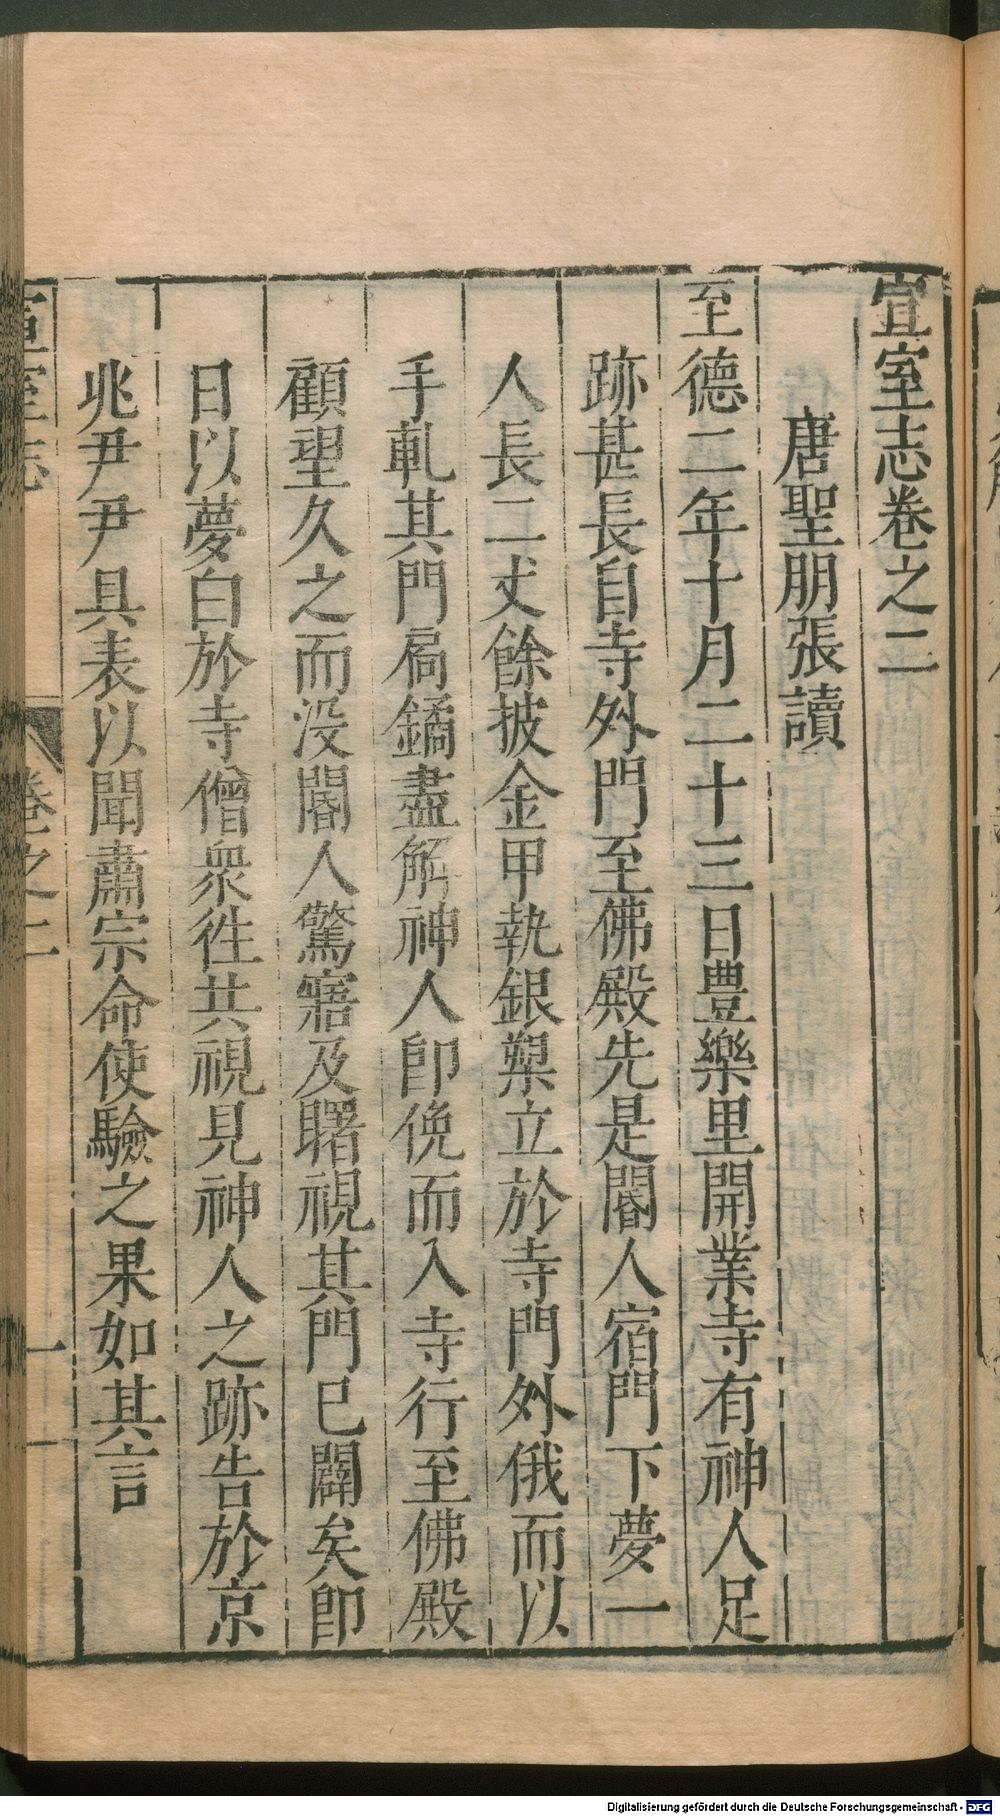 宣室志卷之二
唐聖朋張讀
至德二年十月二十三日豊樂里開業寺有神人足
跡甚長自寺外門至佛殿先是閽人宿門下夢一
人長二丈餘披金甲執銀槊立於寺門外俄而以
手軋其門扃鐍盡解神人卽俛而入寺行至佛殿
顧望久之而没閽人驚寤及曙視其門已闢矣卽
日以夢白於寺僧衆徃共視見神人之跡告於京
兆尹尹具表以聞肅宗命使驗之果如其言
宣室志 卷之二 一
Digitalisierung gefördert durch die Deutsche Forschungsgemeinschaft - DFG